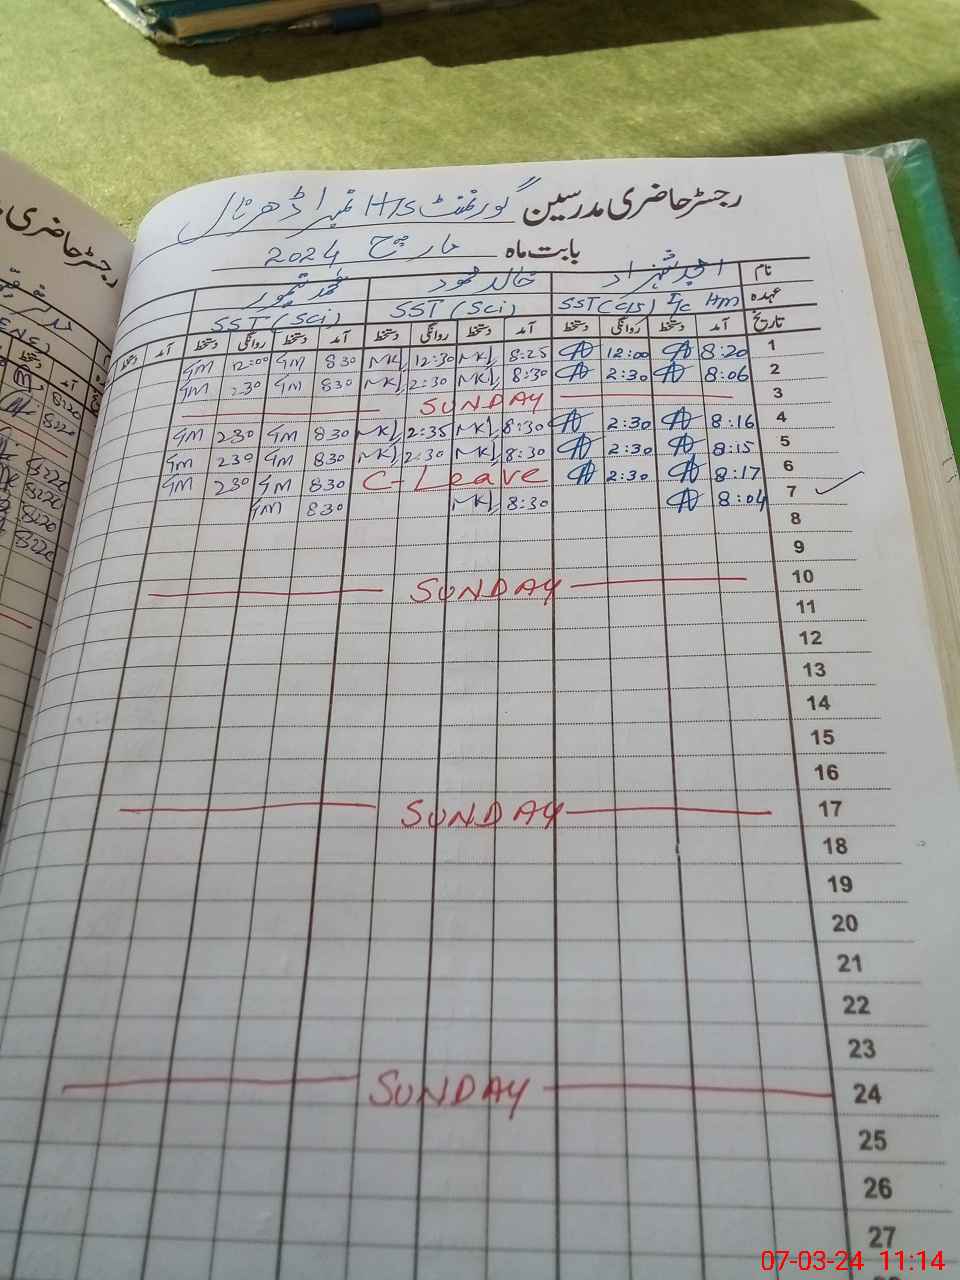 رجسٹر حاضری مدرسین گورنمنٹ H/S نمبر 1
بابت ماہ مارچ 2024
نام امجد شہزاد خالد محمود
عہدہ SST (Sci) SST (Sci) I/c HM
تاریخ آمد دستخط روانگی دستخط آمد دستخط روانگی دستخط آمد دستخط روانگی دستخط آمد دستخط
1 8:20 12:00 8:25 MK 12:30 MK 830 GM 12:00 GM
2 8:06 2:30 8:30 MK 2:30 MK 830 GM 230 GM
3 SUNDAY
4 8:16 2:30 8:30 MK 2:35 MK 830 GM 230 GM
5 8:15 2:30 8:30 MK 2:30 MK 830 GM 230 GM
6 8:17 2:30 C-Leave 830 GM 230 GM
7 8:04 8:30 MK 830 GM
8
9
10 SUNDAY
11
12
13
14
15
16
17 SUNDAY
18
19
20
21
22
23
24 SUNDAY
25
26
27
رجسٹر حاضری
07-03-24 11:14